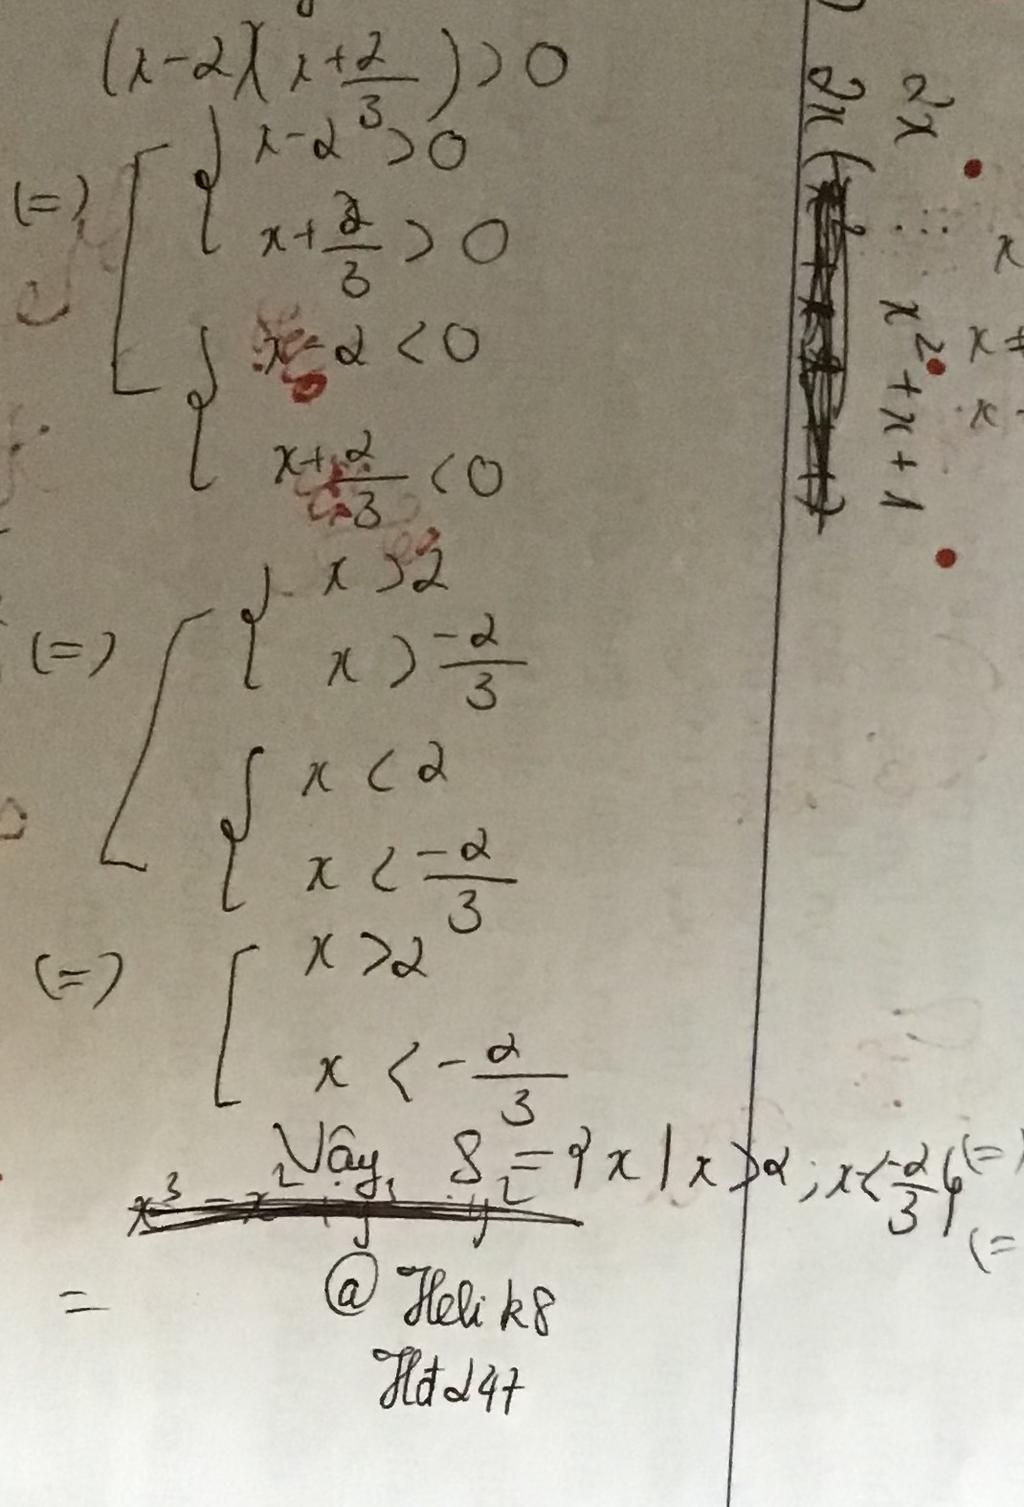 (x-2)(x+2/3)>0
(=) [ { x-2>0
x+2/3>0
{ x-2<0
x+2/3<0
(=) [ { x>2
x>-2/3
{ x<2
x<-2/3
(=) [ x>2
x<-2/3
Vậy S={x|x>2;x<-2/3}
=
@Helik8
Hđ247
2x
x²+x+1
2x(
x
x
x
(=)
(=